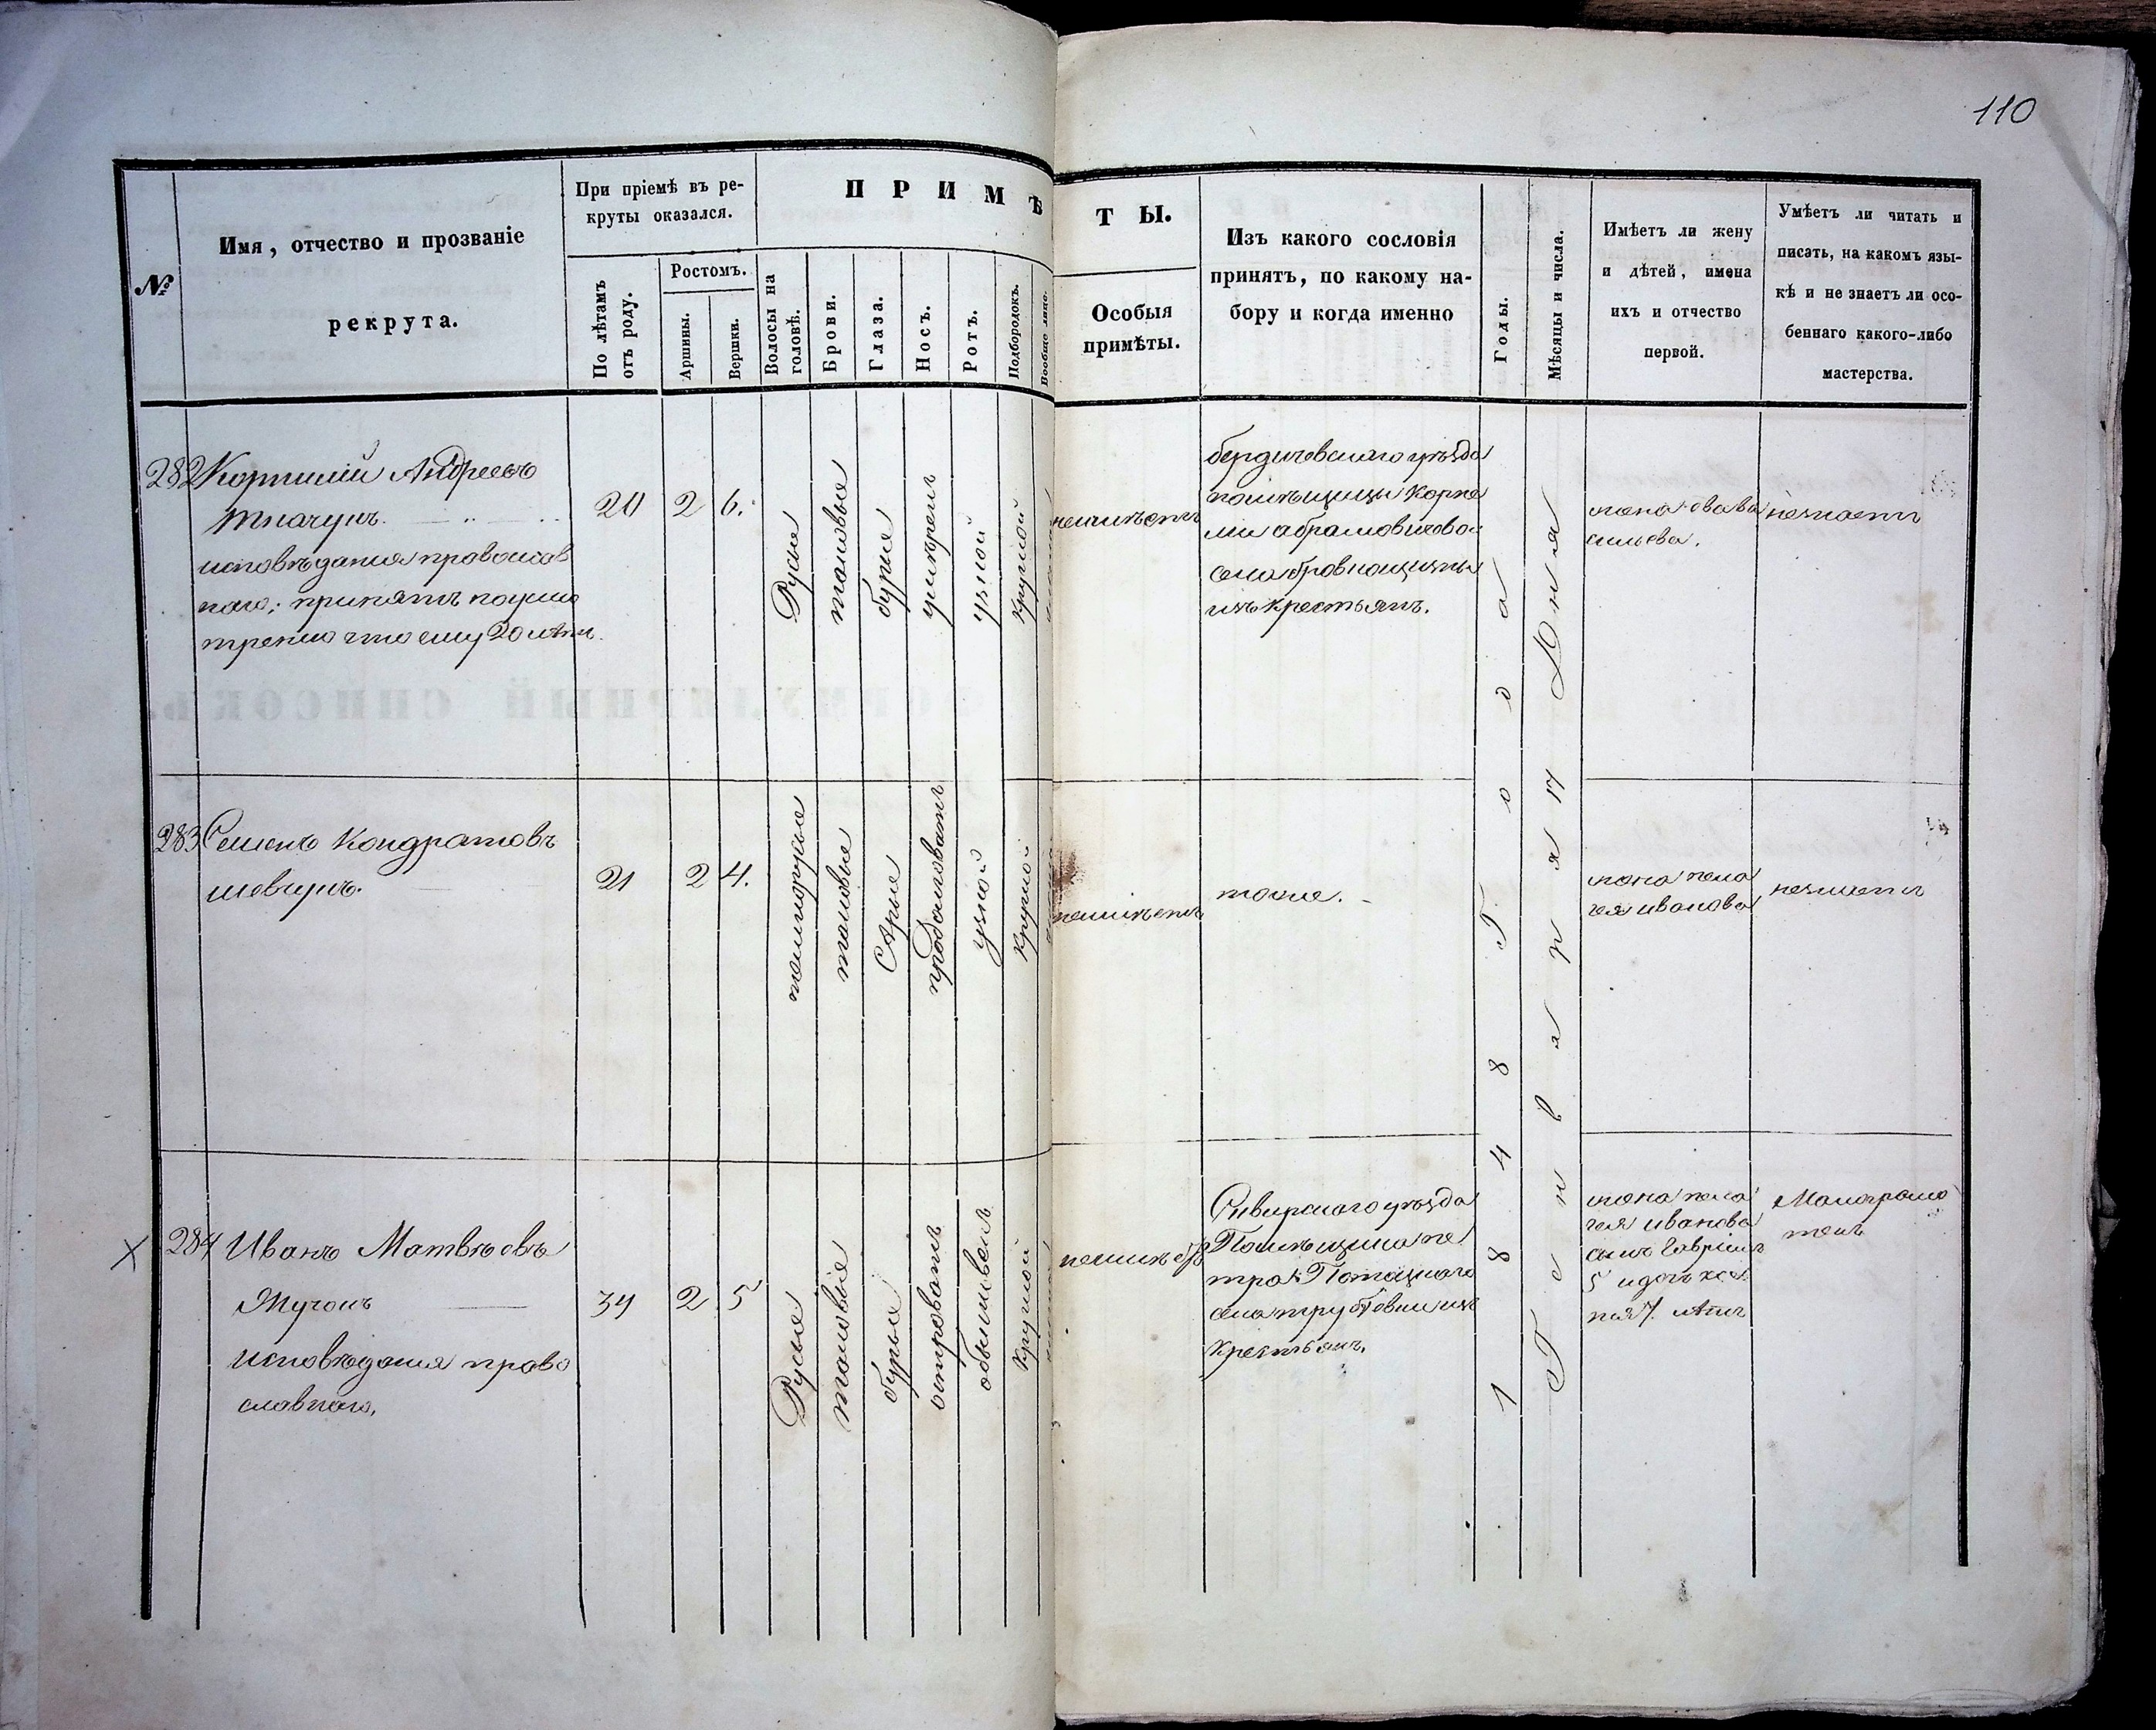 110
№
Имя, отчество и прозваніе
рекрута.
При пріемѣ въ ре-
круты оказался.
По лѣтамъ
отъ роду.
Ростомъ.
Аршины.
Вершки.
ПРИМѢ
Волосы на
головѣ.
Брови.
Глаза.
Носъ.
Ротъ.
Подбородокъ.
Вообще лице.
ТЫ.
Особыя
примѣты.
Изъ какого сословія
принятъ, по какому на-
бору и когда именно
Годы.
Мѣсяцы и числа.
Имѣетъ ли жену
и дѣтей, имена
ихъ и отчество
первой.
Умѣетъ ли читать и
писать, на какомъ язы-
кѣ и не знаетъ ли осо-
беннаго какого-либо
мастерства.
282 Корнилій Андреевъ
Ткачукъ.
исповѣданія православ
наго; принятъ по усмо
тренію что ему 20 лѣтъ.
20
2
6.
Русые
таковые
бурые
умѣрен
узкой
круглой
неимѣетъ
бердичевскаго уѣзда
помѣщицы Корне
ли абрамовичевой
села бровкощизны
изъ крестьянъ.
жена
сильева.
незнаетъ
283 Семенъ Кондратовъ
шевчукъ.
21
2
4.
темнорусые
таковые
Сѣрые
продолговатъ
узкой
круглой
неимѣетъ
тоже.
жена пела
гея иванова
незнаетъ
1848 Года
Генваря 17 Дня
284 Иванъ Матвѣевъ
Жученъ
исповѣданія право
славнаго,
34
2
5
Русые
таковые
бурые
островатъ
обыкновен
круглой
неимѣетъ
Сквирскаго уѣзда
Помѣщика пе
тра Потоцкаго
села трубѣевки изъ
крестьянъ.
жена пела
гея иванова
сынъ Гавріилъ
5 и дочь
7. лѣтъ
Малограмо
тенъ